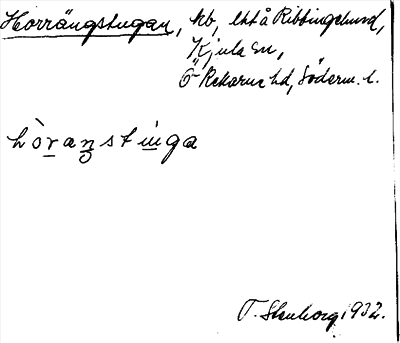 Horrängstugan, hb, lht å Ribbingelund,
Kjula sn,
Ö-Rekarne hd, Söderm. l.
hòranstinga
T. Stenborg 1932.